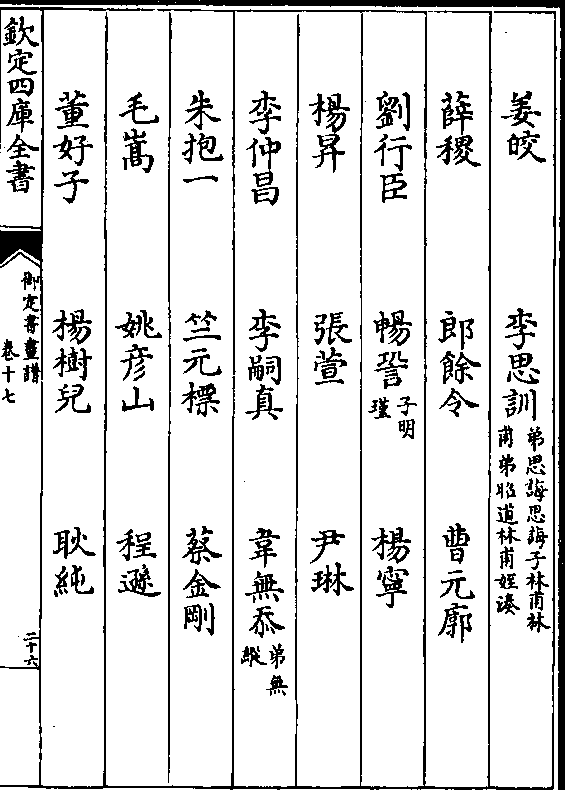 姜皎　李思訓弟思誨思誨子林甫林甫弟昭道林甫姪湊
薛稷　郎餘令　曹元廓
劉行臣　暢𧪫子明瑾　楊寧
楊昇　張萱　尹琳
李仲昌　李嗣真　韋無忝弟無縱
朱抱一　竺元標　蔡金剛
毛嵩　姚彥山　程遜
董好子　楊樹兒　耿純
欽定四庫全書　御定書畫譜　卷十七　二十六